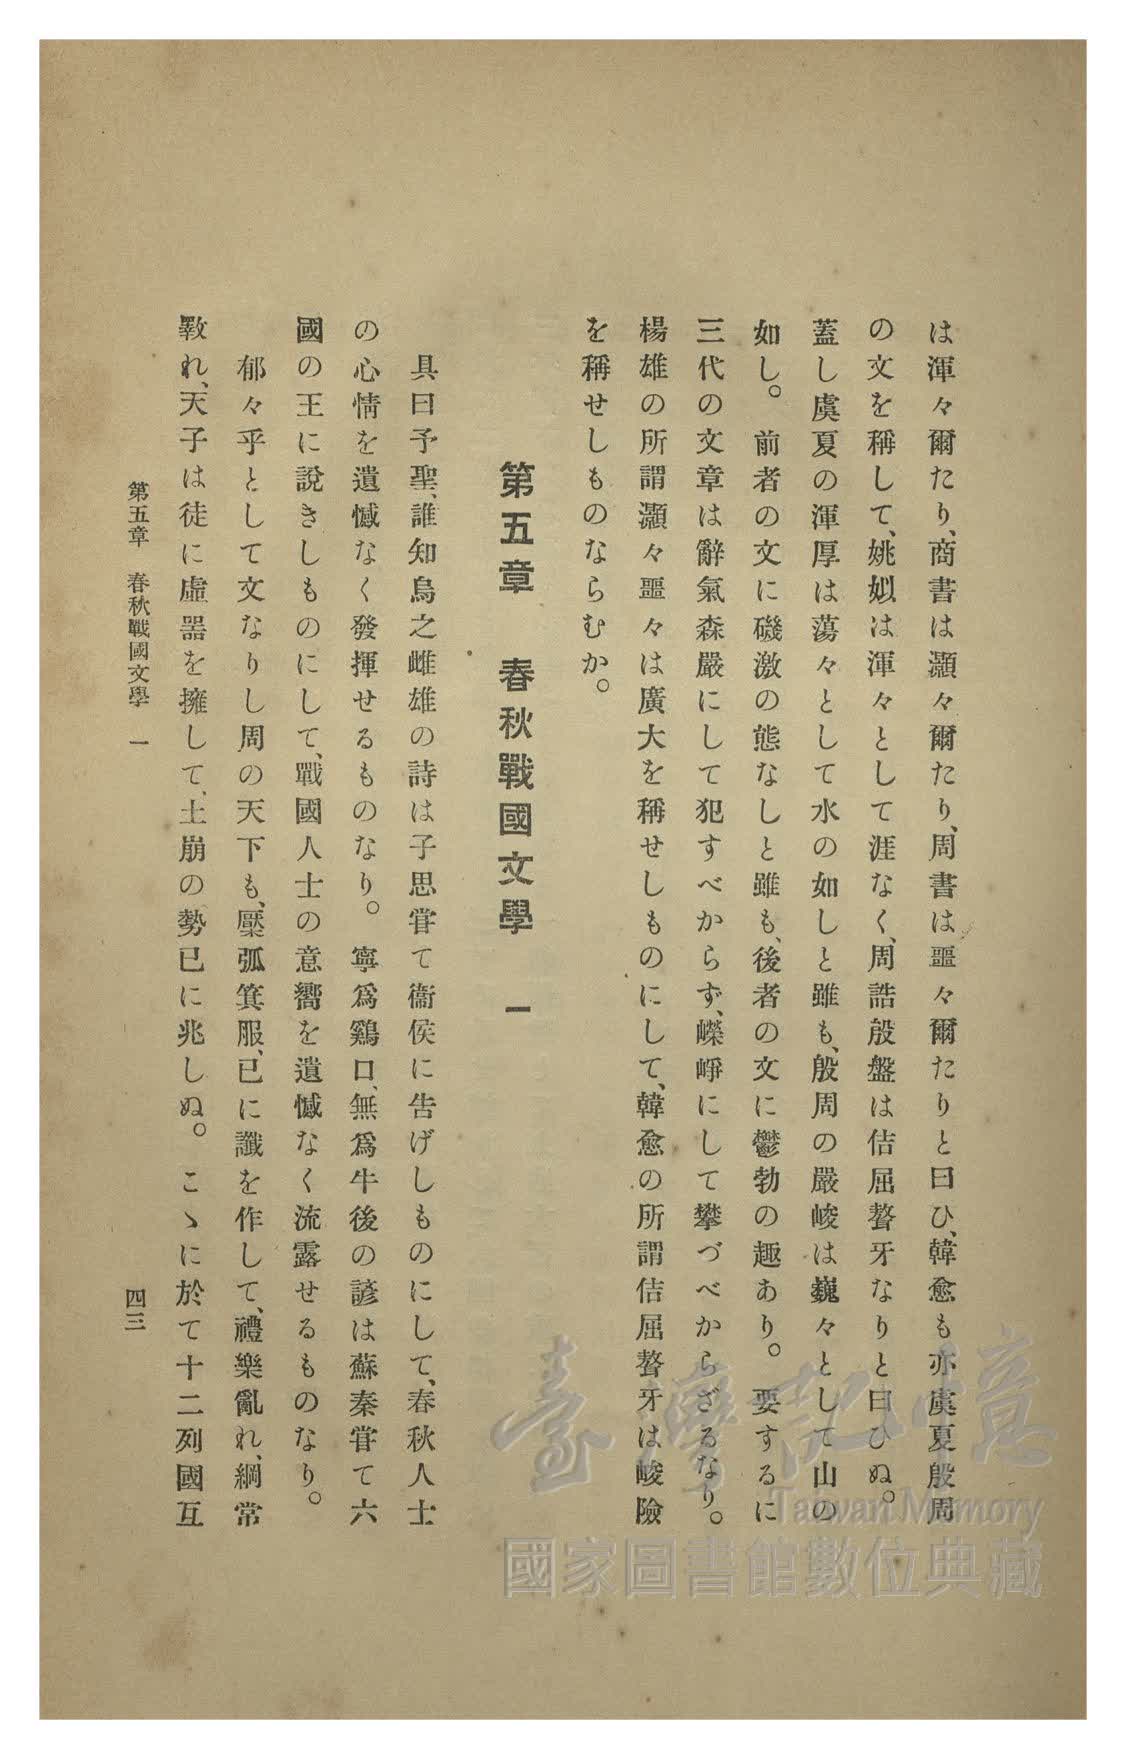 は渾々爾たり、商書は灝々爾たり、周書は噩々爾たりと曰ひ、韓愈も亦虞夏殷周
の文を稱して、姚姒は渾々として涯なく、周誥殷盤は佶屈聱牙なりと曰ひぬ。
蓋し虞夏の渾厚は蕩々として水の如しと雖も、殷周の嚴峻は巍々として山の
如し。前者の文に磯激の態なしと雖も、後者の文に鬱勃の趣あり。要するに
三代の文章は辭氣森嚴にして犯すべからず、嶸崢にして攀づべからざるなり。
楊雄の所謂灝々噩々は廣大を稱せしものにして、韓愈の所謂佶屈聱牙は峻險
を稱せしものならむか。
第五章 春秋戰國文學 一
具曰予聖、誰知烏之雌雄の詩は子思甞て衞侯に告げしものにして、春秋人士
の心情を遺憾なく發揮せるものなり。寧爲鷄口、無爲牛後の諺は蘇秦甞て六
國の王に說きしものにして、戰國人士の意嚮を遺憾なく流露せるものなり。
郁々乎として文なりし周の天下も、檿弧箕服、已に讖を作して、禮樂亂れ、綱常
斁れ、天子は徒に虛器を擁して、土崩の勢已に兆しぬ。こゝに於て十二列國互
第五章 春秋戰國文學 一
四三
臺灣記憶
Taiwan Memory
國家圖書館數位典藏